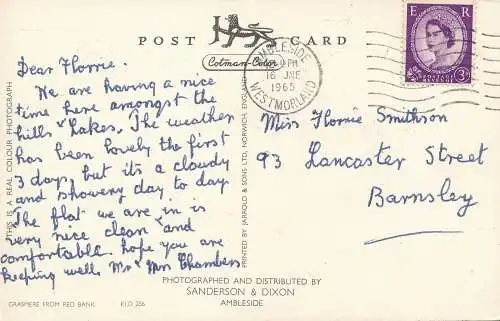 POST CARD
Cotman-Color
AMBLESIDE
PM
16 JNE
1965
WESTMORLAND
E R
POSTAGE
3D
Dear Florrie.
We are having a nice
time here amongst the
hills & Lakes. The weather
has been lovely the first
3 days, but it's a cloudy
and showery day to day
The flat we are in is
very nice clean and
comfortable. hope you are
keeping well. Mr & Mrs Chambers
Miss Florrie Smithson
93 Lancaster Street
Barnsley
THIS IS A REAL COLOUR PHOTOGRAPH
PRINTED BY JARROLD & SONS LTD, NORWICH, ENGLAND
PHOTOGRAPHED AND DISTRIBUTED BY
SANDERSON & DIXON
AMBLESIDE
GRASMERE FROM RED BANK KLD 256